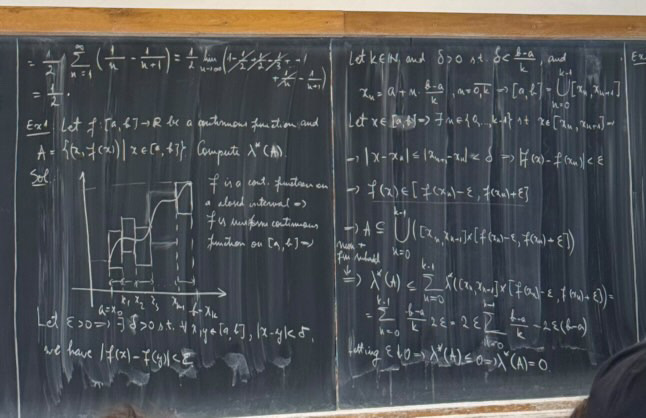 = 1/2 ∑_{n=1}^{∞} (1/n - 1/(n+1)) = 1/2 lim_{n→∞} (1 - 1/2 + 1/2 - 1/3 + ...
+ 1/n - 1/(n+1))
= 1/2.
Ex! Let f: [a,b] → R be a continuous function and
A = {(x, f(x)) | x ∈ [a,b]} Compute λ*(A)
Sol.
f is a cont. function on
a closed interval ⇒
f is uniform continuous
function on [a,b] ⇒
a=x₀ x₁ x₂ x₃ b=x_k
Let ε>0 ⇒ ∃ δ>0 s.t. ∀ x,y ∈ [a,b], |x-y|<δ,
we have |f(x)-f(y)|<ε
Let k∈N, and δ>0 s.t. δ< (b-a)/k, and
x_n = a + n · (b-a)/k, n=0,k ⇒ [a,b] = ⋃_{n=0}^{k-1} [x_n, x_{n+1}]
Let x∈[a,b] ⇒ ∃ n∈{0,...,k-1} s.t. x∈[x_n, x_{n+1}] ⇒
⇒ |x-x_n| ≤ |x_{n+1}-x_n| ≤ δ ⇒ |f(x)-f(x_n)|<ε
⇒ f(x) ∈ [f(x_n)-ε, f(x_n)+ε]
⇒ A ⊆ ⋃_{n=0}^{k-1} ([x_n, x_{n+1}]×[f(x_n)-ε, f(x_n)+ε])
⇒ λ*(A) ≤ ∑_{n=0}^{k-1} λ*([x_n, x_{n+1}]×[f(x_n)-ε, f(x_n)+ε]) =
= ∑_{n=0}^{k-1} (b-a)/k · 2ε = 2ε ∑_{n=0}^{k-1} (b-a)/k = 2ε(b-a)
letting ε↓0 ⇒ λ*(A) ≤ 0 ⇒ λ*(A) = 0.
Ex